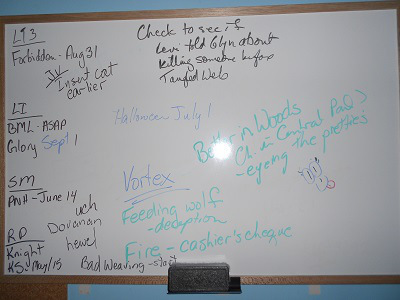 L93
Forbidden - Aug 31
Insert cat
earlier
Check to see if
Levi told Glyn about
killing someone before
Tangled Web
LI
BML - ASAP
Glory Sept 1
Halloween July 1
Better in Woods
Ch. in Central Park?
- eyeing the pretties
SM
PNH - June 14
uch
Donovan
hewel
Vortex
Feeding wolf
- deception
Fire - cashier's cheque
RP
Knight
KS May 15
Bad Weaving - start